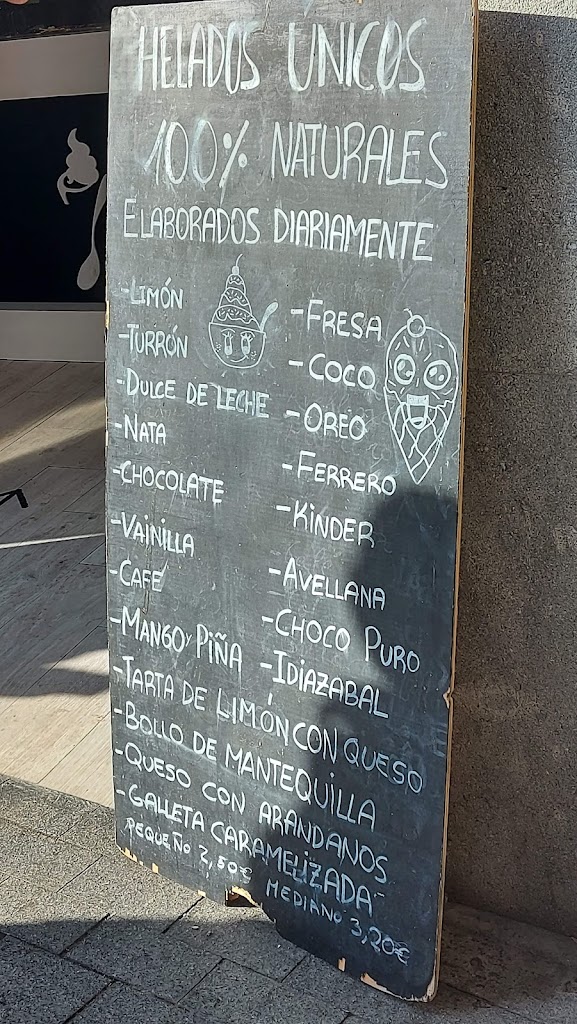 HELADOS ÚNICOS
100% NATURALES
ELABORADOS DIARIAMENTE
-LIMÓN
-TURRÓN
-DULCE DE LECHE
-NATA
-CHOCOLATE
-VAINILLA
-CAFÉ
-MANGO Y PIÑA
-FRESA
-COCO
-OREO
-FERRERO
-KINDER
-AVELLANA
-CHOCO PURO
-IDIAZABAL
-TARTA DE LIMÓN CON QUESO
-BOLLO DE MANTEQUILLA
-QUESO CON ARANDANOS
-GALLETA CARAMELIZADA-
PEQUEÑO 2,50€ MEDIANO 3,20€